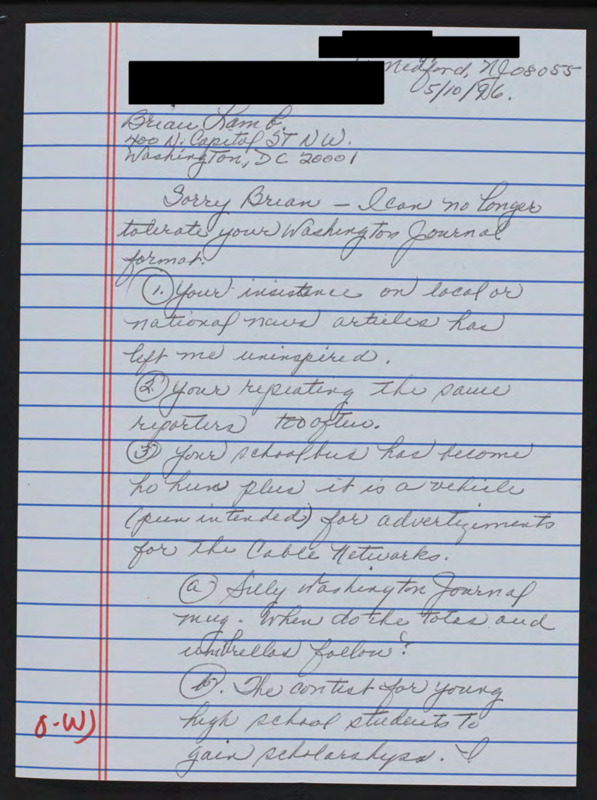 Medford, NJ 08055
5/10/96.
Brian Lamb
400 N. Capitol ST NW.
Washington, DC 20001
Sorry Brian — I can no longer
tolerate your Washington Journal
format.
1. Your insistence on local or
national news articles has
left me uninspired.
2. Your repeating the same
reporters too often.
3. Your school bus has become
ho hum plus it is a vehicle
(pun intended) for advertizments
for the Cable Networks.
a Silly Washington Journal
mug. When do the totes and
umbrellas follow?
b. The contest for young
high school students to
gain scholarships. I